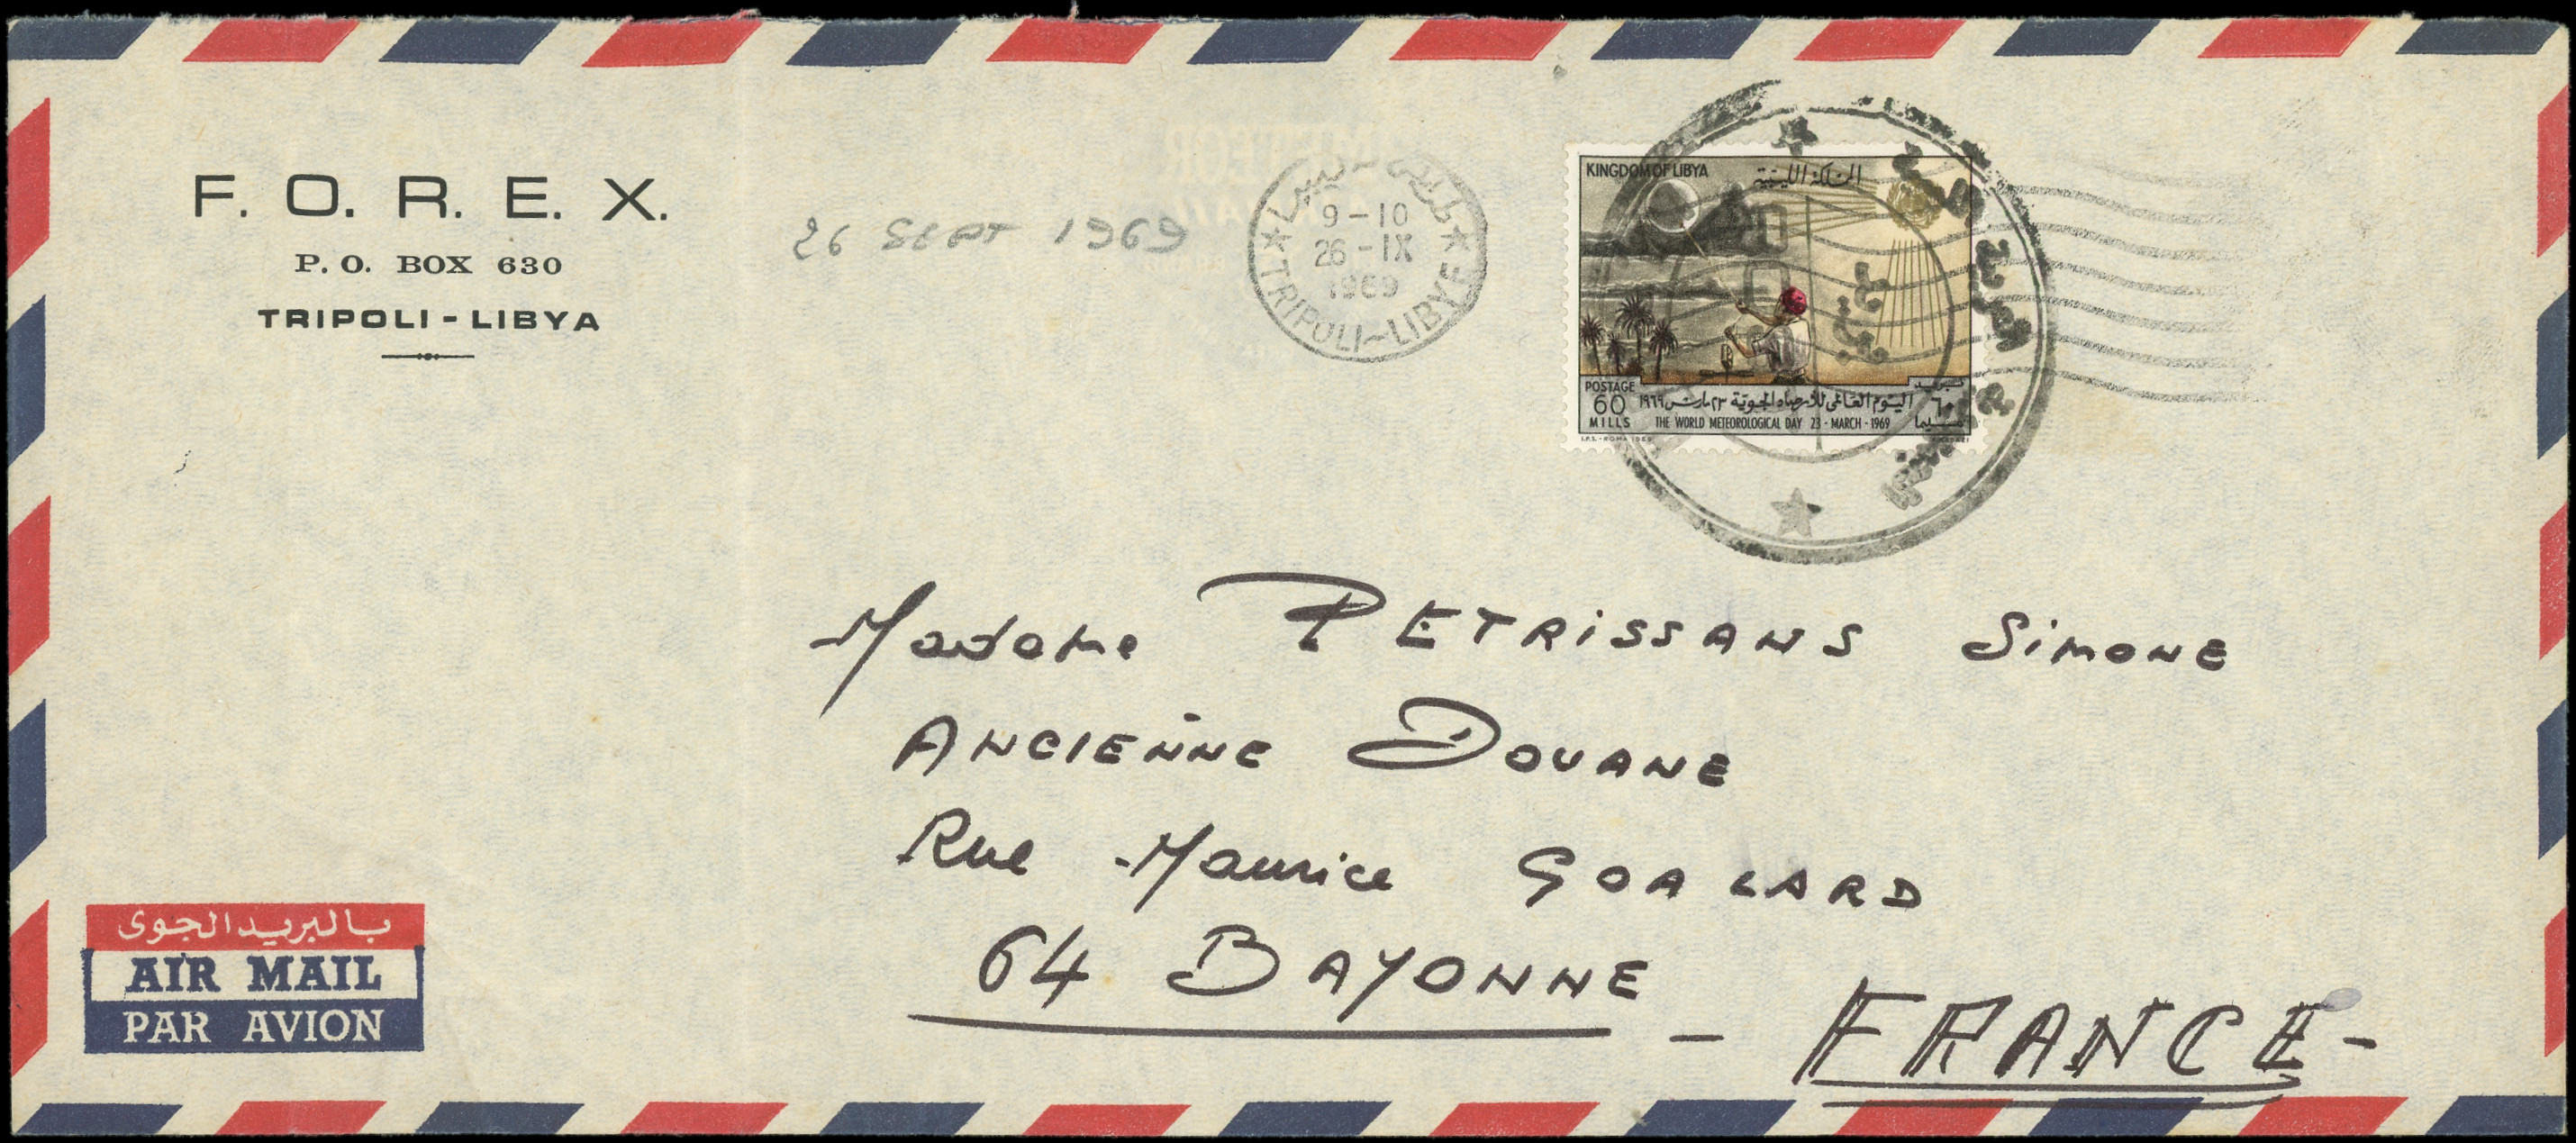 F. O. R. E. X.
P. O. BOX 630
TRIPOLI - LIBYA
26 SEPT 1969
طرابلس - ليبيا
9-10
26-IX
1969
TRIPOLI-LIBYE
KINGDOM OF LIBYA
المملكة الليبية
POSTAGE
60
MILLS
بريد
٦٠
مليما
اليوم العالمى للأرصاد الجوية ٢٣ مارس ١٩٦٩
THE WORLD METEOROLOGICAL DAY 23 - MARCH - 1969
I.P.S. - ROMA 1969
العربية
Madame PETRISSANS Simone
ANCIENNE DOUANE
Rue Maurice GOALARD
64 BAYONNE - FRANCE -
بالبريد الجوى
AIR MAIL
PAR AVION